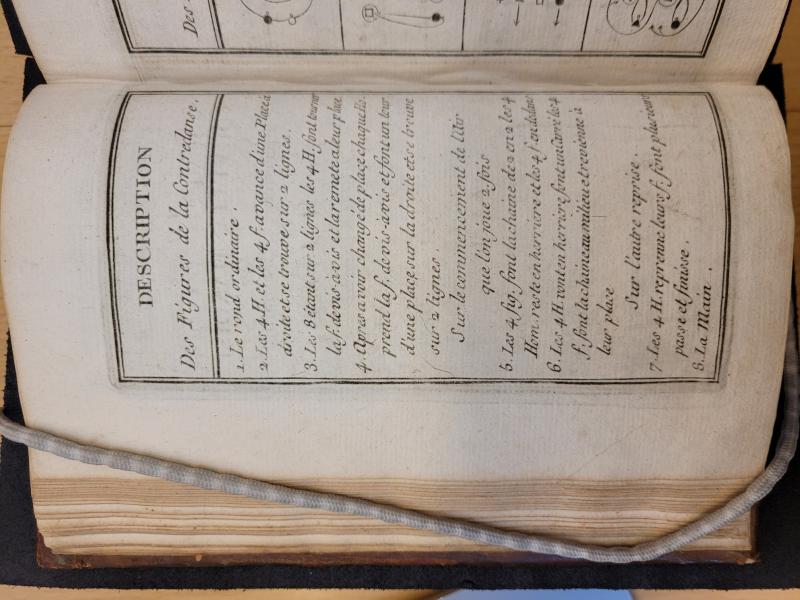 Des
DESCRIPTION
Des Figures de la Contredanse.
1. Le rond ordinaire.
2. Les 4 H. et les 4 f. avance d'une Place a
droite et se trouve sur 2 lignes.
3. Les 8 étant sur 2 lignes les 4 H. font tourner
la f. de vis-a-vis et la remete a leur place.
4. Apres avoir changé de place chaque H.
prend la f. de vis-avis et font un tour
d'une place sur la droite et se trouve
sur 2 lignes.
Sur le commencement de l'air
que l'on joue 2 fois
5. Les 4 fig. font la chaine de 2 en 2 les 4
Hom. reste en harriere et les 4 f. en dedans
6. Les 4 H. vont en harriere font un carré les 4
f. font la chaine au milieu et revienne à
leur place
Sur l'autre reprise.
7. Les 4 H. reprenne leurs f. font plusieurs
passe et finisse.
8. La Main.